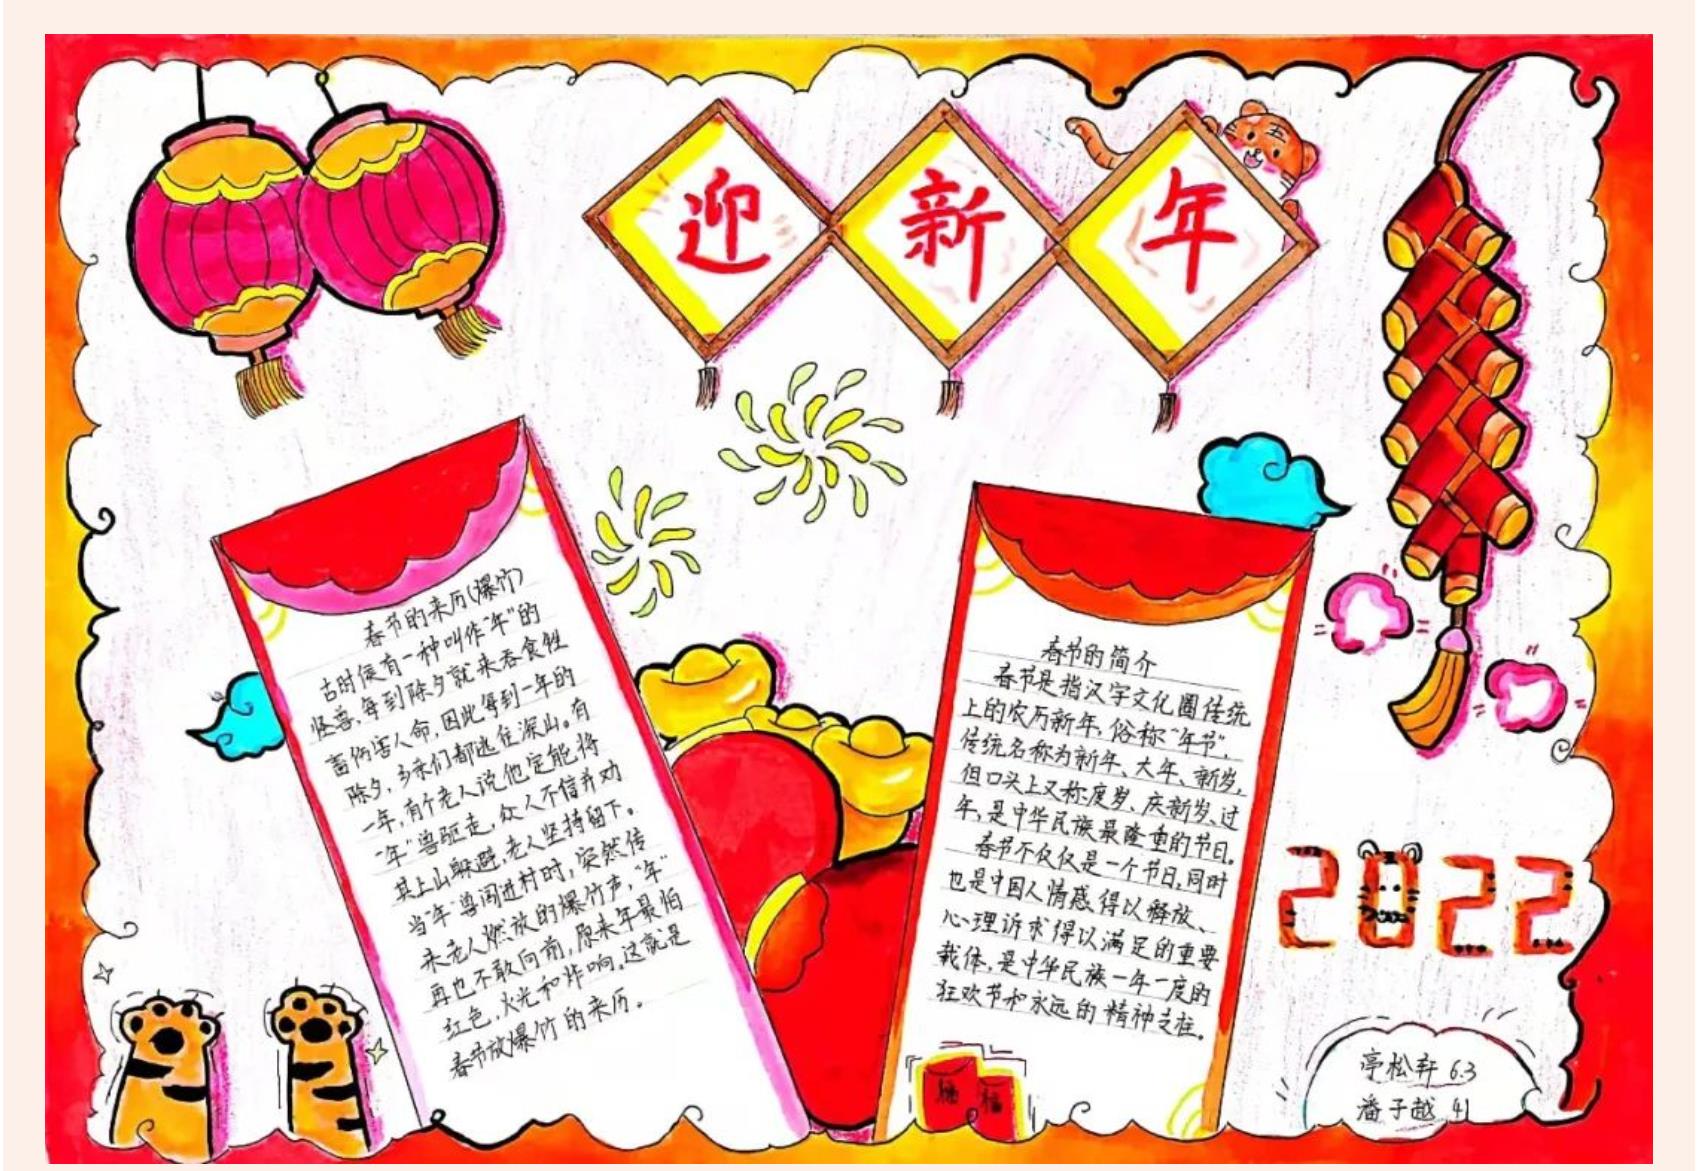 迎新年
春节的来历(爆竹)
古时侯有一种叫作"年"的
怪兽,每到除夕就来吞食牲
畜伤害人命,因此每到一年的
除夕,乡亲们都逃往深山。有
一年,有个老人说他定能将
"年"兽驱走,众人不信并劝
其上山躲避,老人坚持留下。
当"年"兽闯进村时,突然传
来老人燃放的爆竹声,"年"
再也不敢向前,原来年最怕
红色,火光和炸响,这就是
春节放爆竹的来历。
春节的简介
春节是指汉字文化圈传统
上的农历新年,俗称"年节",
传统名称为新年、大年、新岁,
但口头上又称度岁、庆新岁、过
年,是中华民族最隆重的节日。
春节不仅仅是一个节日,同时
也是中国人情感得以释放、
心理诉求得以满足的重要
载体,是中华民族一年一度的
狂欢节和永远的精神支柱。
2022
福 福
亭松轩 6.3
潘子越 41